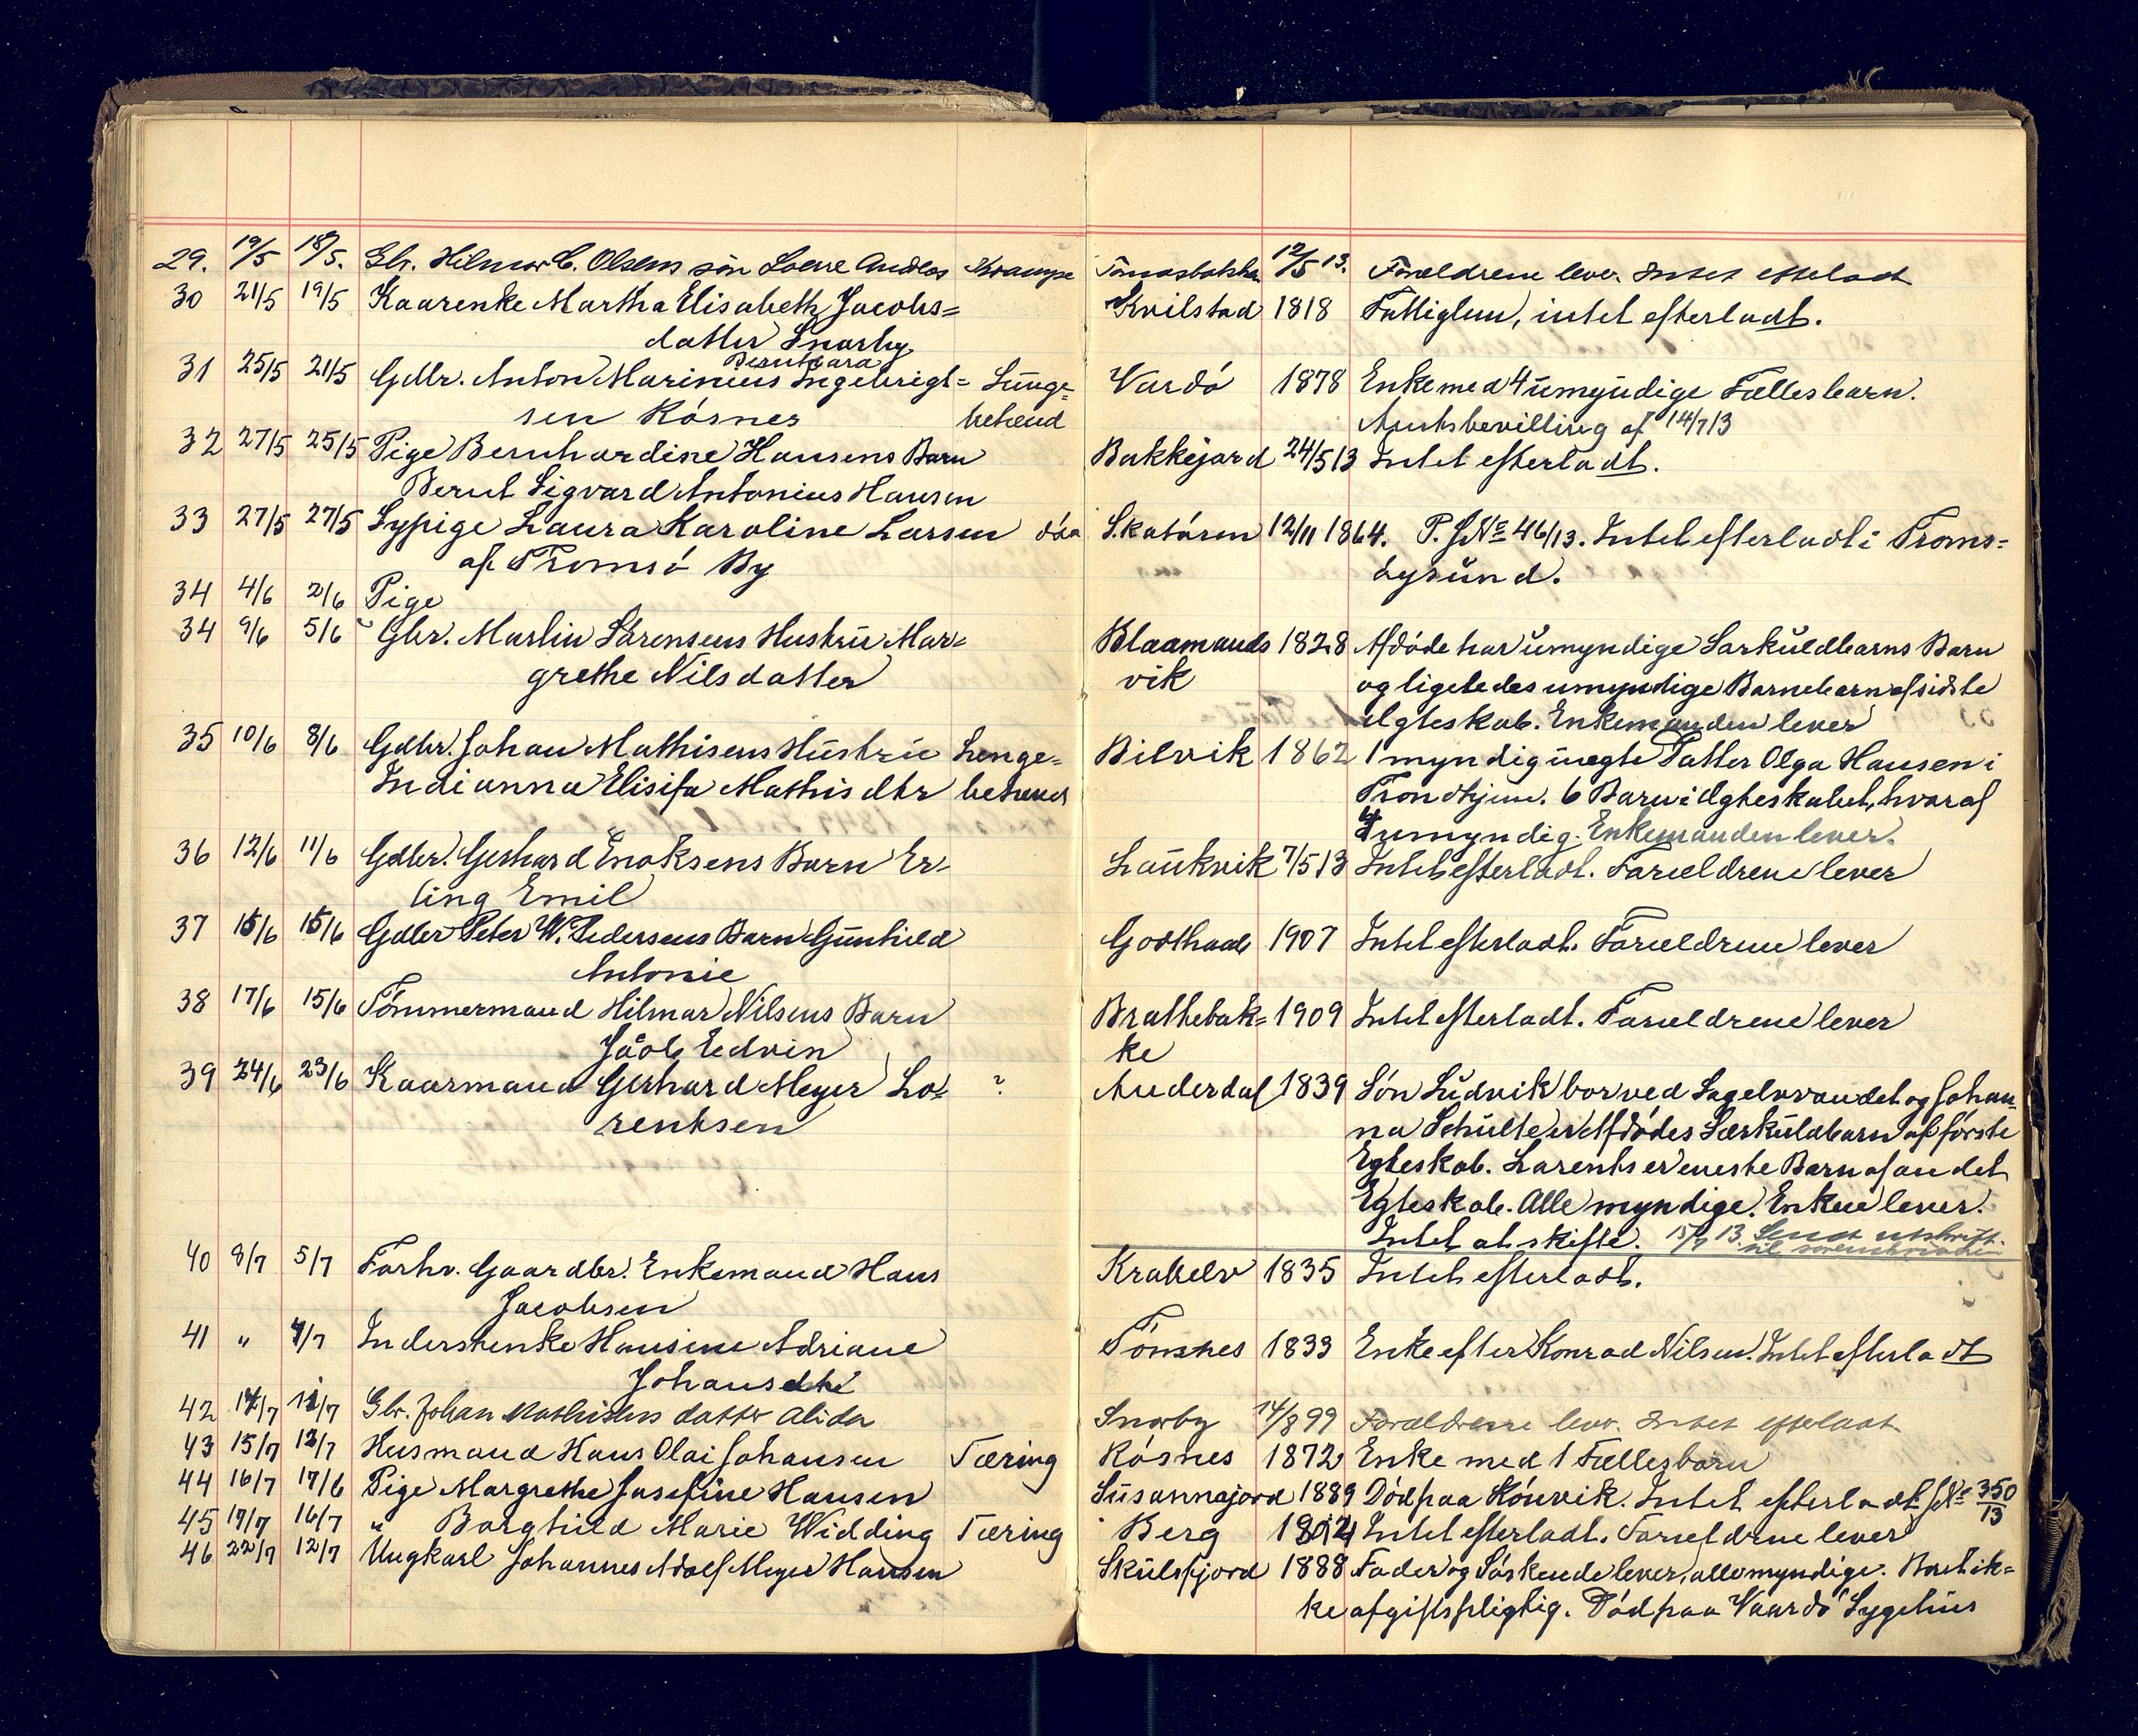 29. 19/5 18/5. Gbr. Hilmar C. Olsens søn Loerne Andleas Krampe Tomasbakken 12/5 13. Forældrene lever. Intet efterladt
30 21/5 19/5 Kaarenke Martha Elisabeth Jacobs= Kvilstad 1818 Fattiglem, intet efterladt.
datter Snarby
Bernhard
31 25/5 21/5 Gdbr. Anton Marinius Ingebrigt= Lunge= Vardö 1878 Enke med 4 umyndige Fællesbarn.
sen Rösnes betænd Amtsbevilling af 14/7 13
32 27/5 25/5 Pige Bernhardine Hansens Barn Bakkejord 24/5 13 Intet efterladt.
Bernt Sigvard Antonius Hansen
33 27/5 27/5 Sypige Laura Karoline Larsen Skatören 12/11 1864. P. J. No 46/13. Intet efterladt i Troms=
af Tromsö By öysund.
34 4/6 2/6 Pige
34 9/6 5/6 Gbr. Martin Sörensens Hustru Mar= Blaamands 1828 Afdöde har umyndige Særkuldbarns Barn
grethe Nilsdatter vik og ligeledes umyndige Barnebarn af sidste
Ægteskab. Enkemanden lever
35 10/6 8/6 Gdbr. Johan Mathisens Hustru Lunge= Bilvik 1862 1 myndig uægte Datter Olga Hansen i
Indianna Elisifa Mathisdtr betænd Trondhjem. 6 Barn i Ægteskabet, hvoraf
4 umyndig. Enkemanden lever.
36 12/6 11/6 Gdbr. Gerhard Enoksens Barn Er= Laukvik 7/5 13 Intet efterladt. Forældrene lever
ling Emil
37 15/6 15/6 Gdbr Peter W. Pedersens Barn Gunhild Godthaab 1907 Intet efterladt. Forældrene lever
Antonie
38 17/6 15/6 Tömmermand Hilmar Nilsens Barn Brattebak= 1909 Intet efterladt. Forældrene lever
Jaob Edvin ke
39 24/6 23/6 Kaarmand Gerhard Meyer Lo= ? Anderdal 1839 Sön Ludvik bor ved Sagelvvandet og Johan=
rentsen na Schulte er Afdödes Særkuldbarn af förste
Egteskab. Larents er eneste Barn af andet
Egteskab. Alle myndige. Enken lever.
Intet at skifte. 15/7 13. Sendt utskrift
til sorenskriveren
40 8/7 5/7 Forhv. Gaardbr. Enkemand Hans Krabelv 1835 Intet efterladt.
Jacobsen
41 " 4/7 Inderstenke Hansine Adriane Tönsnes 1833 Enke efter Konrad Nilsen. Intet efterladt
Johansdtr
42 14/7 12/7 Gbr. Johan Mathisens datter Alida Snarby 14/8 99 Forældrene lever. Intet efterladt
43 15/7 13/7 Husmand Hans Olai Johansen Tæring Rösnes 1872 Enke med 1 Fællesbarn
44 16/7 17/6 Pige Margrethe Josefine Hansen Susannajord 1889 Död paa Rönvik. Intet efterladt. JNo 350/13
45 17/7 16/7 " Borghild Marie Widding Tæring Berg Intet efterladt. Forældrene lever
46 22/7 12/7 Ungkarl Johannes Adolf Meyer Hansen Skulsfjord 1888 Fader og Söskende lever, alle myndige. Boet ik=
ke afgiftspligtig. Död paa Vaardö Sygehus